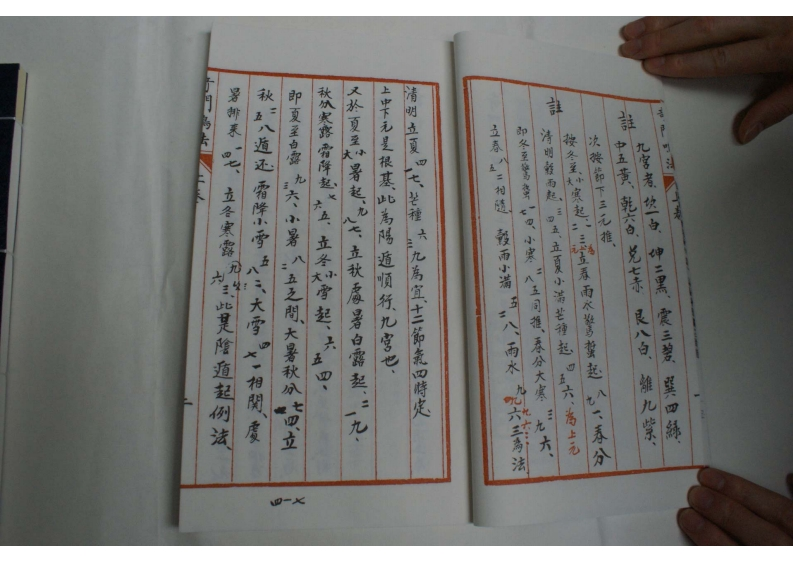 註
九宮者、坎一白、坤二黑、震三碧、巽四綠、
中五黃、乾六白、兌七赤、艮八白、離九紫、
次按節下三元推、
註
按冬至、小大寒起、一二三、立春雨水驚蟄起、八九一、春分
為元
清明穀雨起、三四五、立夏小滿芒種起、四五六、為上元
即冬至驚蟄一七四、小寒二八五同推、春分大寒三九六、
立春八五二相隨、穀雨小滿五二八、雨水九六三為法
九六三、
清明立夏四一七、芒種六三九為宜、十二節氣四時定、
上中下元是根基、此為陽遁順行、九宮也、
又於夏至小大暑起、九八七、立秋處暑白露起、二一九、
秋分寒露霜降起、七六五、立冬小大雪起、六五四、
即夏至白露九三六、小暑八二五之間、大暑秋分七一四、立
秋二五八遁還、霜降小雪五八二、大雪四七一相関、處
暑排來一四七、立冬寒露六九三、此是陰遁起例法、
四一七
奇門鳴法
上卷